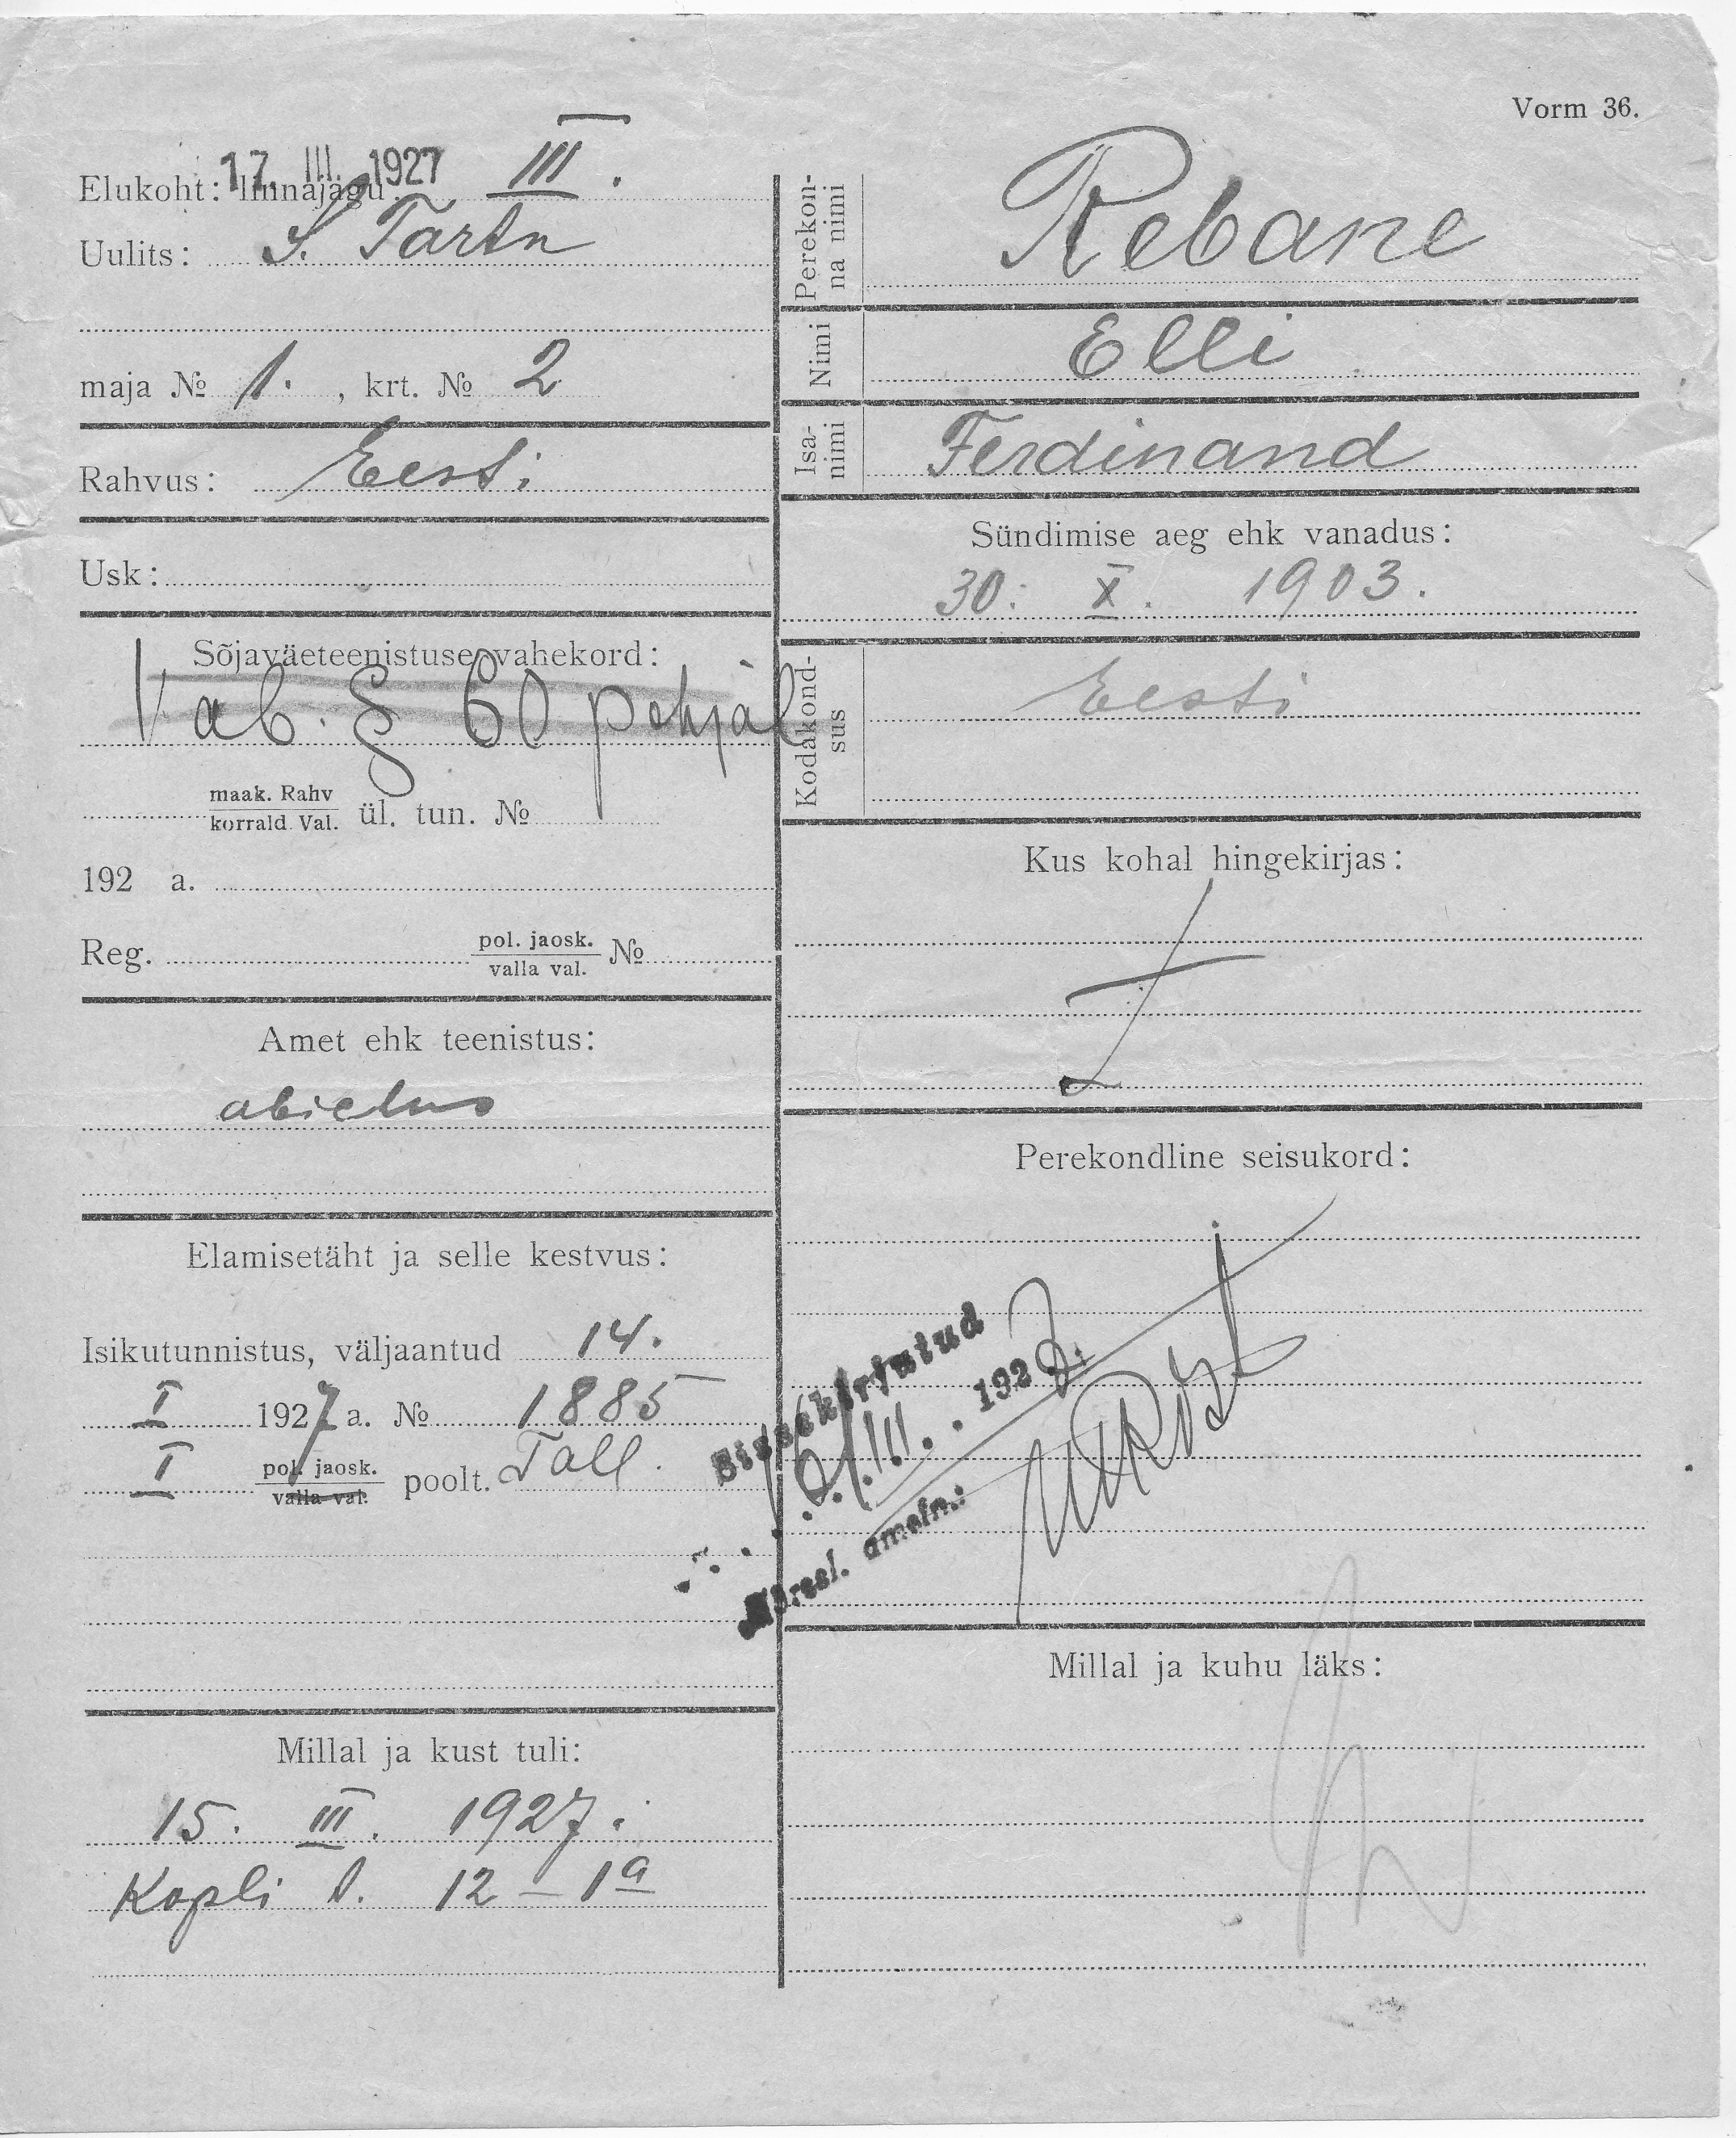 Vorm 36.
17. III. 1927
Elukoht: linnajagu III.
Uulits: S. Tartu
maja № 1. , krt. № 2
Rahvus: Eesti
Usk:
Sõjaväeteenistuse vahekord:
Vab. § 60 pohjal
maak. Rahv
korrald. Val. ül. tun. №
192 a.
Reg. pol. jaosk. №
valla val.
Amet ehk teenistus:
abielus
Elamisetäht ja selle kestvus:
Isikutunnistus, väljaantud 14.
I 1927 a. № 1885
I pol. jaosk. poolt. Tall.
valla val.
Millal ja kust tuli:
15. III. 1927.
Kopli t. 12 – 1a
Perekonna nimi Rebane
Nimi Elli
Isanimi Ferdinand
Sündimise aeg ehk vanadus:
30. X. 1903.
Kodakondsus Eesti
Kus kohal hingekirjas:
Perekondline seisukord:
Sissekirjutud
16. III. 1927.
ametn.:
Millal ja kuhu läks: